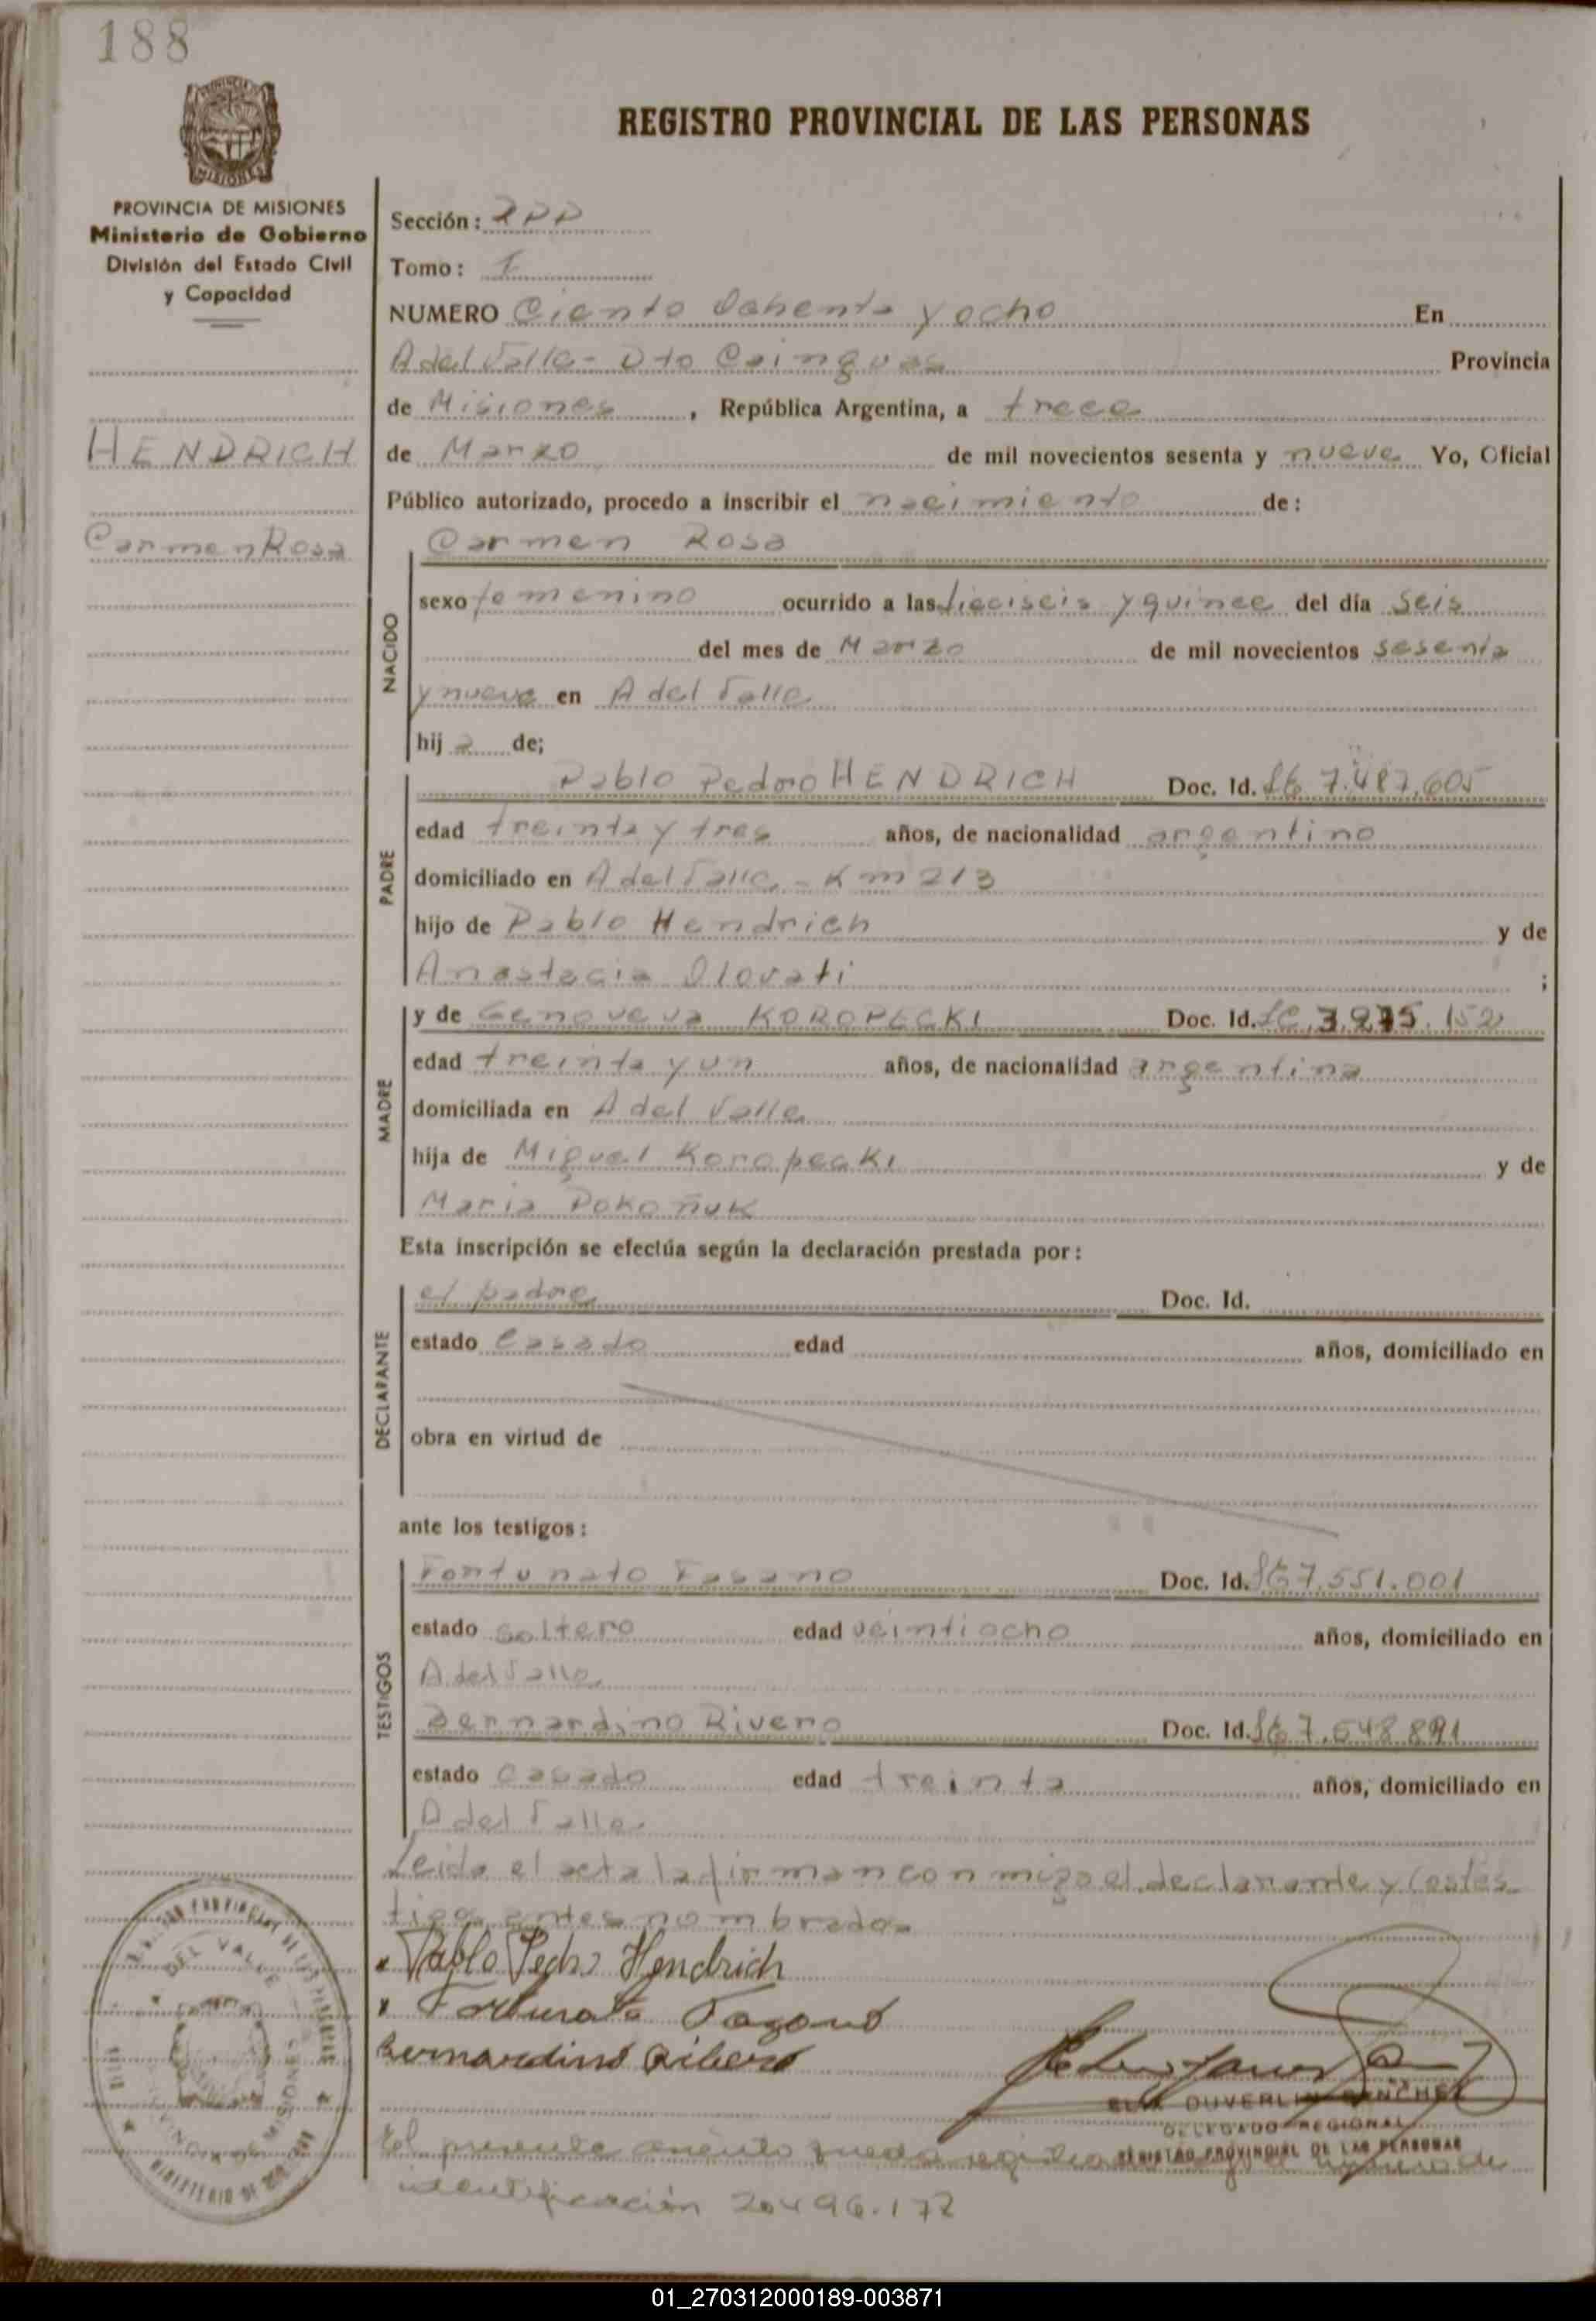 188
REGISTRO PROVINCIAL DE LAS PERSONAS
PROVINCIA DE MISIONES
Ministerio de Gobierno
División del Estado Civil
y Capacidad
HENDRICH
Carmen Rosa
Sección:
Tomo: I
NUMERO Ciento Ochenta y ocho En
A del Valle - Dto Cainguas Provincia
de Misiones, República Argentina, a trece
de Marzo de mil novecientos sesenta y nueve Yo, Oficial
Público autorizado, procedo a inscribir el nacimiento de:
Carmen Rosa
NACIDO
sexo femenino ocurrido a las dieciseis y quince del día seis
del mes de Marzo de mil novecientos sesenta
y nueve en A del Valle
hija de;
PADRE
Pablo Pedro HENDRICH Doc. Id. 7.487.605
edad treinta y tres años, de nacionalidad argentino
domiciliado en A del Valle - Km 213
hijo de Pablo Hendrich y de
Anastacia Olovati ;
MADRE
y de Genoveva KOROPECKI Doc. Id. LC 152
edad treinta y un años, de nacionalidad argentina
domiciliada en A del Valle
hija de Miguel Koropecki y de
Maria Pokoñuk
Esta inscripción se efectúa según la declaración prestada por:
DECLARANTE
el padre Doc. Id.
estado Casado edad años, domiciliado en
obra en virtud de
ante los testigos:
TESTIGOS
Fortunato Fasano Doc. Id. 7.551.001
estado soltero edad veintiocho años, domiciliado en
A del Valle
Bernardino Rivero Doc. Id. 7.648.891
estado Casado edad treinta años, domiciliado en
A del Valle
Leida el acta la firman conmigo el declarante y los tes-
tigos antes nombrados
Pablo Pedro Hendrich
Fortunato
Bernardino Ribero
DUVERLI SANCHEZ
DELEGADO REGIONAL
REGISTRO PROVINCIAL DE LAS PERSONAS
El presente asiento queda número de
identificación 20496.172
DEL VALLE
MISIONES
01_270312000189-003871